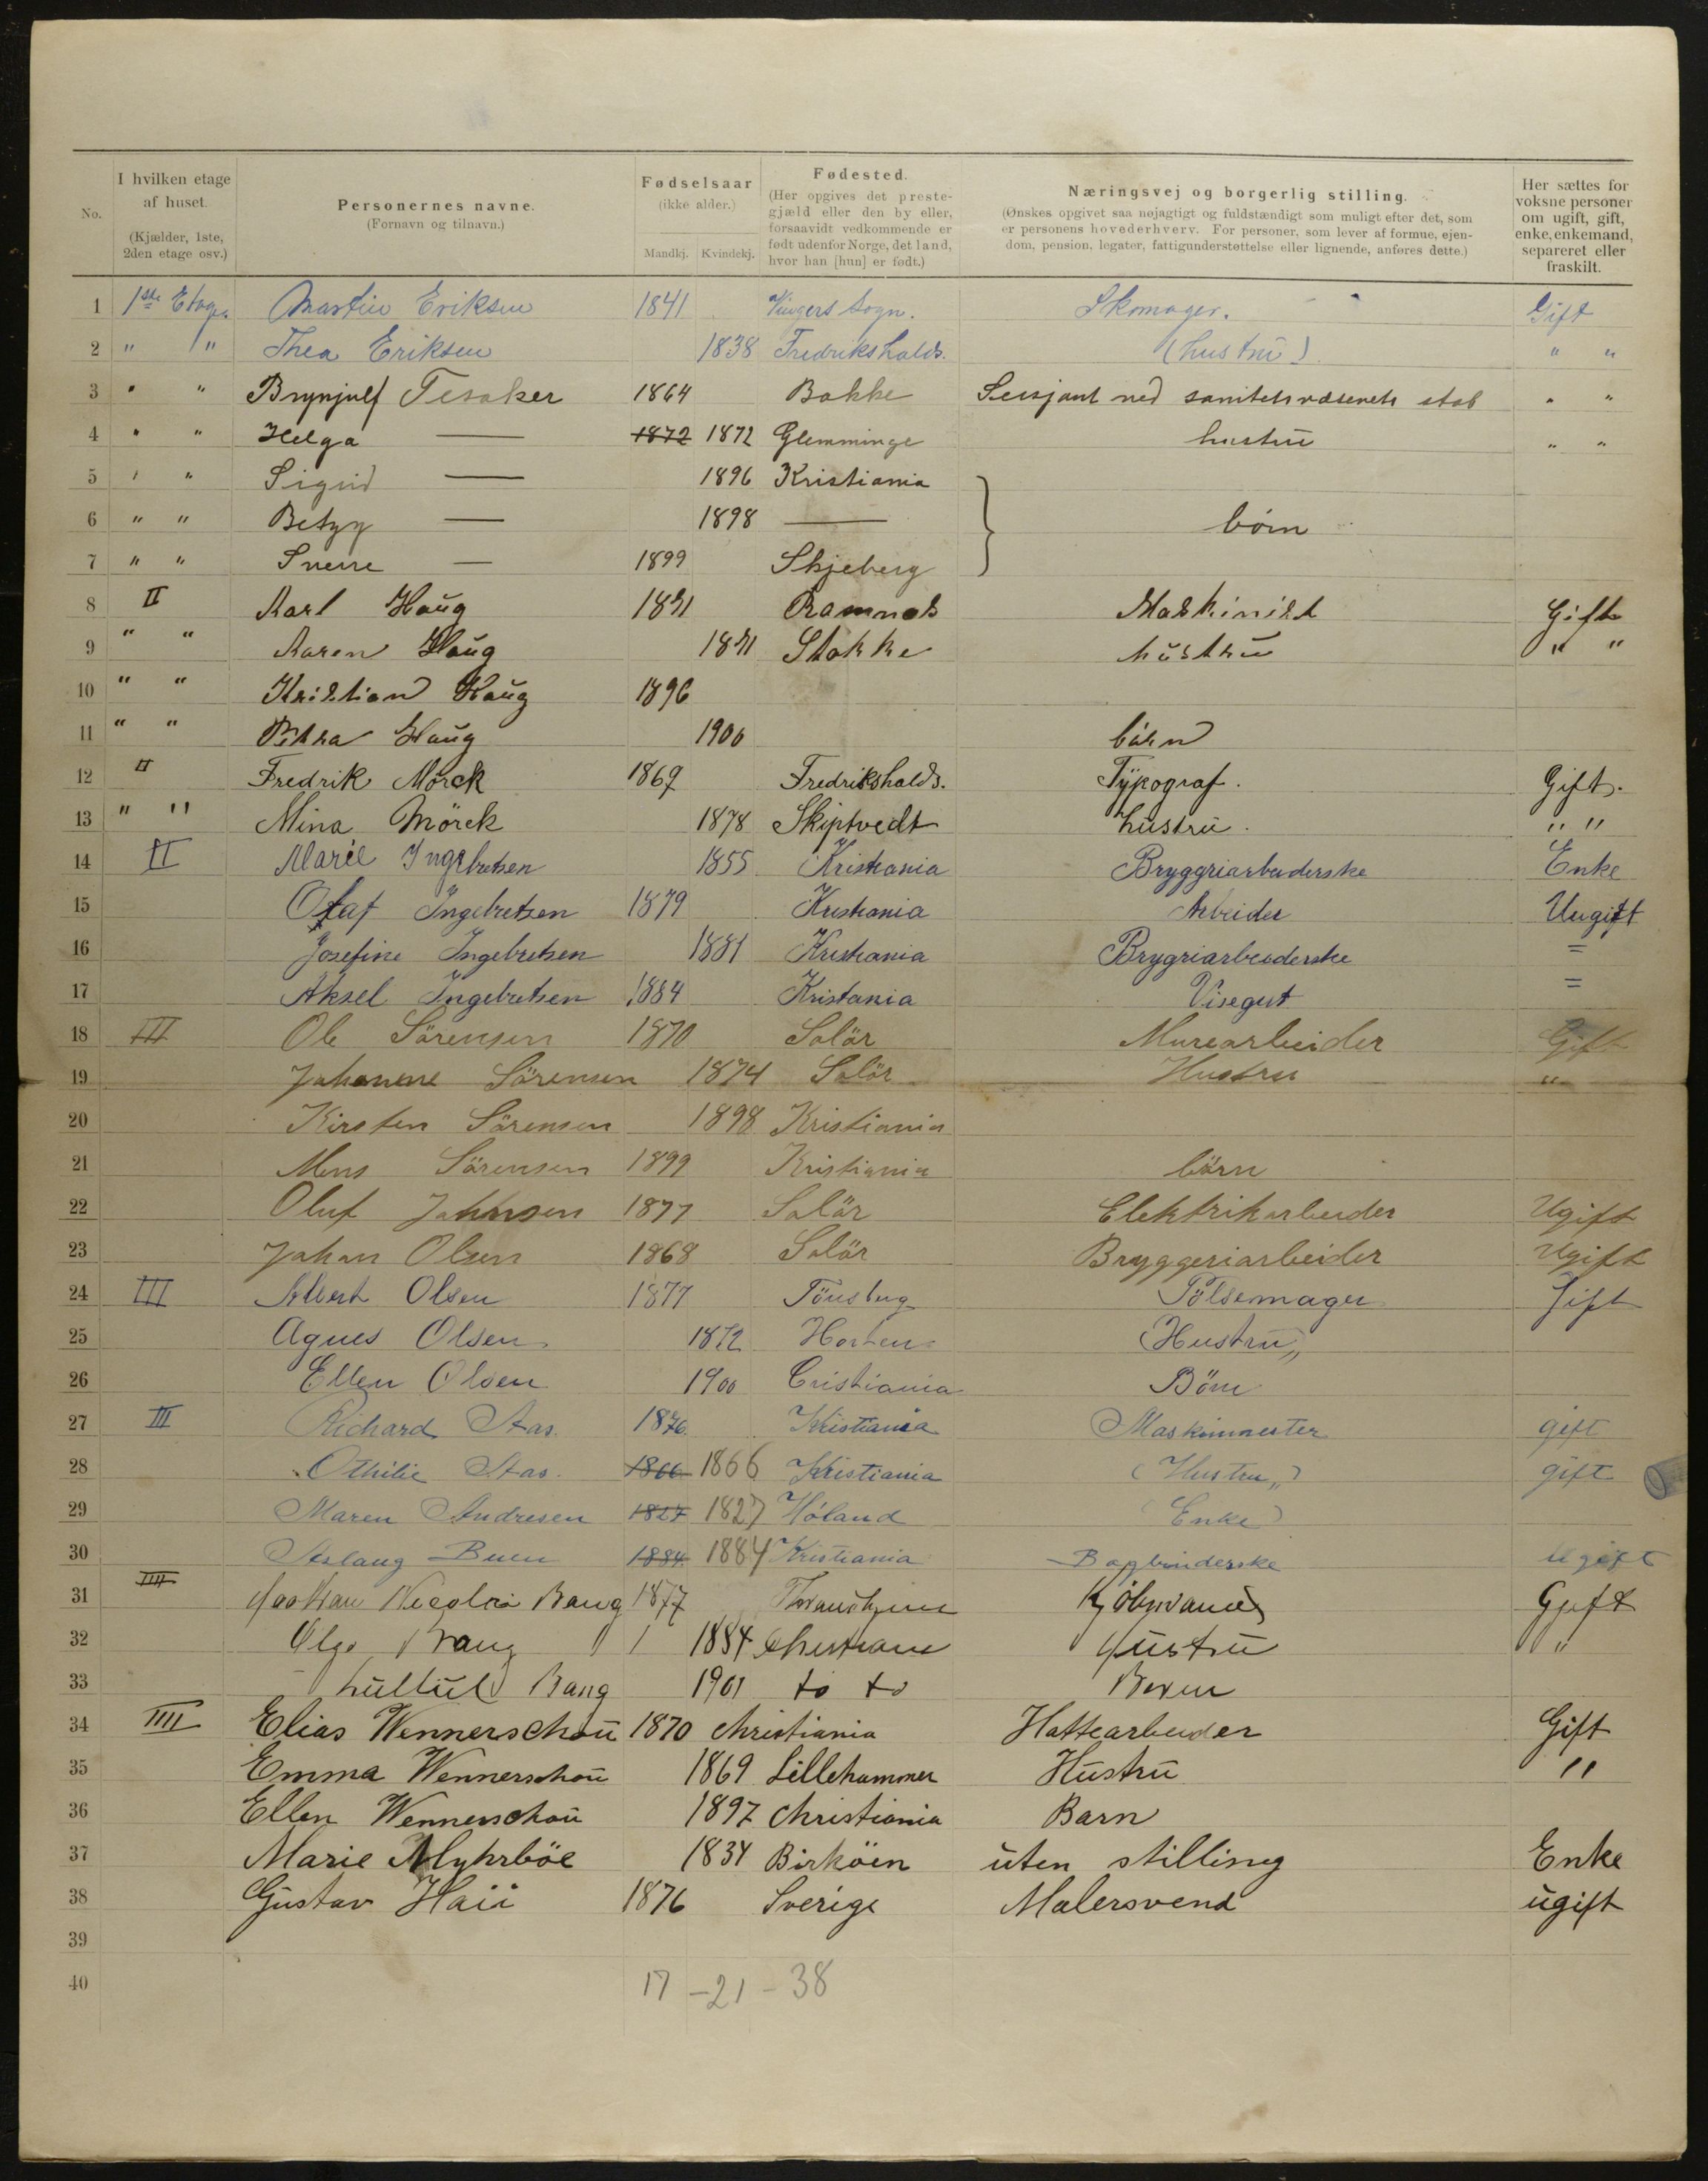 No.
I hvilken etage af huset.
(Kjælder, 1ste, 2den etage osv.)
Personernes navne.
(Fornavn og tilnavn.)
Fødselsaar
(ikke alder.)
Mandkj. Kvindekj.
Fødested.
(Her opgives det prestegjæld eller den by eller, forsaavidt vedkommende er født udenfor Norge, det land, hvor han [hun] er født.)
Næringsvej og borgerlig stilling.
(Ønskes opgivet saa nøjagtigt og fuldstændigt som muligt efter det, som er personens hovederhverv. For personer, som lever af formue, ejendom, pension, legater, fattigunderstøttelse eller lignende, anføres dette.)
Her sættes for voksne personer om ugift, gift, enke, enkemand, separeret eller fraskilt.
1 1ste Etage Martin Eriksen 1841 Vingers Sogn. Skomager. Gift
2 " " Thea Eriksen 1838 Fredrikshalds. (hustrü) " "
3 " " Brynjulf Tesaker 1864 Bakke Sersjant ved sanitetsvæsenets stab " "
4 " " Helga — 1872 1872 Glemminge hustrü " "
5 " " Sigrid — 1896 Kristiania
6 " " Betzy — 1898 — börn
7 " " Sverre — 1899 Skjeberg
8 II Karl Haüg 1871 Ramnes Maskinist Gift
9 " " Karen Haüg 1871 Stokke hüstrü " "
10 " " Kristian Haüg 1896
11 " " Petra Haüg 1900 börn
12 II Fredrik Mörck 1869 Fredrikshalds. Typograf. Gift.
13 " " Mina Mörck 1878 Skiptvedt hüstrü. " "
14 II Marie Ingebretsen 1855 Kristiania Bryggriarbeiderske Enke
15 Olaf Ingebretsen 1879 Kristiania Arbeider Uugift
16 Josefine Ingebretsen 1881 Kristiania Brygriarbeiderske =
17 Aksel Ingebretsen 1884 Kristania Visegut =
18 III Ole Sörensen 1870 Solör Murearbeider Gift
19 Johanne Sörensen 1874 Solör Hustru "
20 Kirsten Sörensen 1898 Kristiania
21 Mons Sörensen 1899 Kristiania börn
22 Oluf Johnsen 1877 Solör Elektrikarbeider Ugift
23 Johan Olsen 1868 Solör Bryggeriarbeider Ugift
24 III Albert Olsen 1877 Tönsberg Pölsemager Gift
25 Agnes Olsen 1872 Horten (Hustru,,
26 Ellen Olsen 1900 Cristiania Börn
27 III Richard Aas. 1876 Kristiania Maskinmester gift
28 Othilie Aas. 1866 1866 Kristiania (Hustru,,) gift
29 Maren Andresen 1827 1827 Höland (Enke)
30 Aslaug Buen 1884 1884 Kristiania Bogbinderske Ugift
31 IIII Nicolai Bang 1877 Throndhjem Kjöbmand Gift
32 Olga Bang 1 1884 Christiania Hüstrü "
33 Bang 1901 to to
34 IIII Elias Wennerschoü 1870 Christiania Hattearbeider Gift
35 Emma Wennerschoü 1869 Lillehammer Hüstrü "
36 Ellen Wennerschoü 1897 Christiania Barn
37 Marie Myhrböe 1834 Birköen üten stilling Enke
38 Güstav Haii 1876 Sverige Malersvend ügift
39
40 17 – 21 – 38